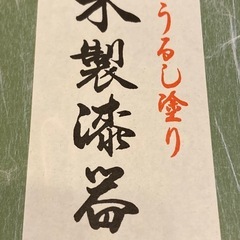 うるし塗り
木製漆器